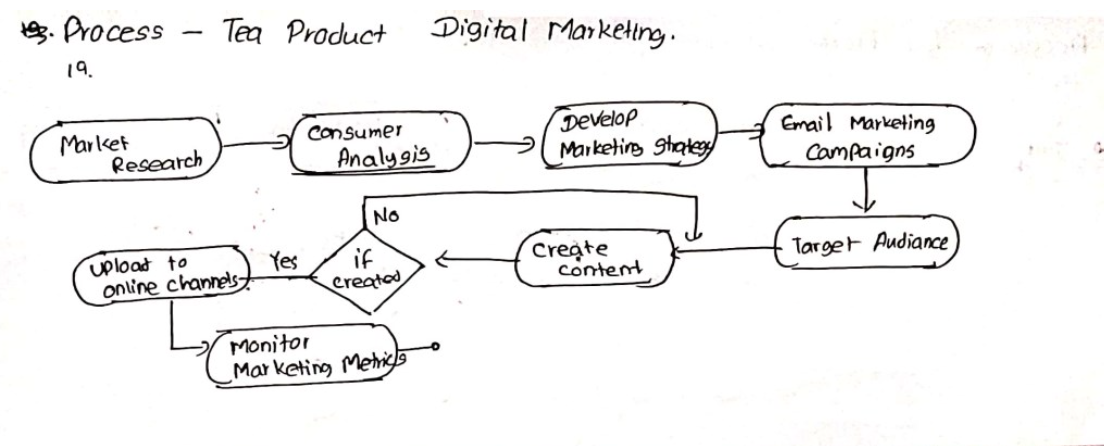 Process - Tea Product Digital Marketing.
19.
Market
Research
Consumer
Analysis
Develop
Marketing Strategy
Email Marketing
Campaigns
Target Audiance
Create
content
if
created
No
Yes
Upload to
online channels
Monitor
Marketing Metrics